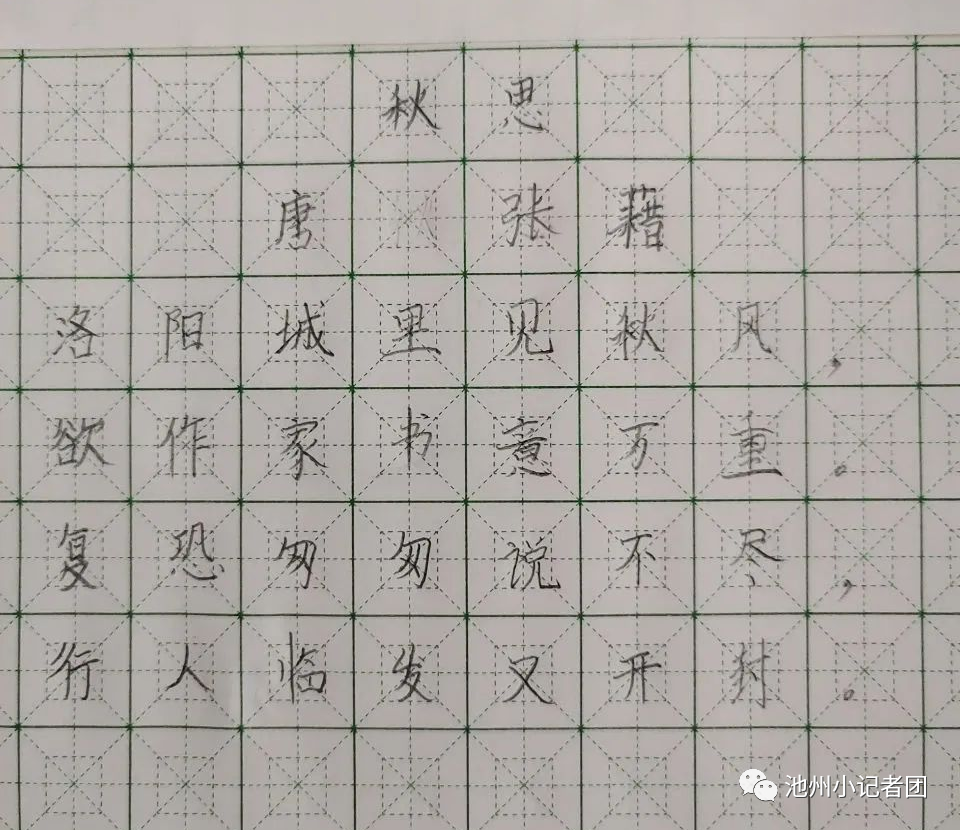 秋思
唐 张藉
洛阳城里见秋风，
欲作家书意万重。
复恐匆匆说不尽，
行人临发又开封。
池州小记者团